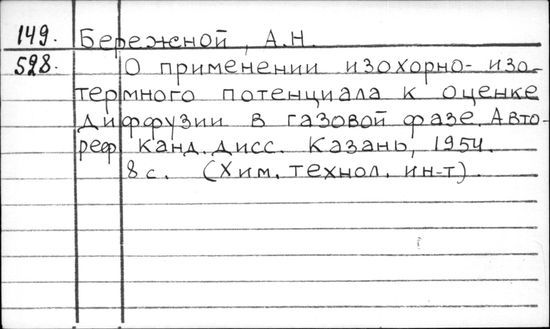 149. Бережной, А.Н.
528. О применении изохорно-изо-
термного потенциала к оценке
диффузии в газовой фазе. Авто-
реф. канд. дисс. Казань, 1954.
8 с. (Хим. технол. ин-т).